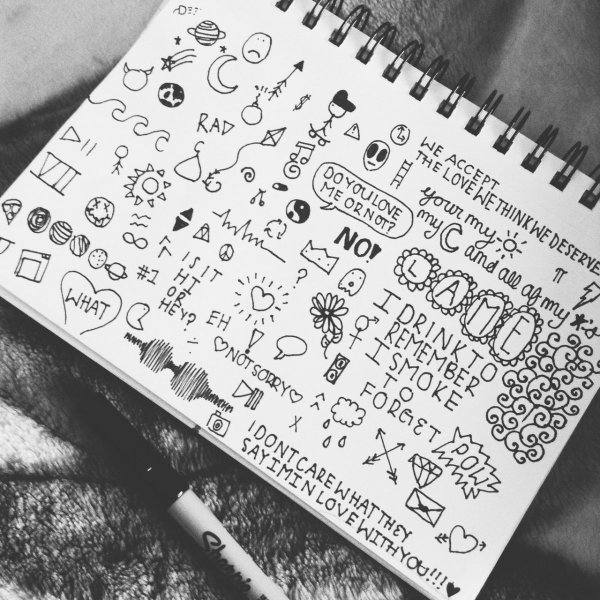 WE ACCEPT
THE LOVE WE THINK WE DESERVE
RAD
VII
DO YOU LOVE
ME OR NOT?
your my
my and all of my *'s
NO!
LAME
π
?
WHAT
#1
IS IT
HI
OR
HEY?
EH
!
♡NOT SORRY♡
I DRINK TO
REMEMBER
I SMOKE
TO
FORGET
X
POW!
I DONT CARE WHAT THEY
SAY IM IN LOVE WITH YOU!!!!♥
Sharpie